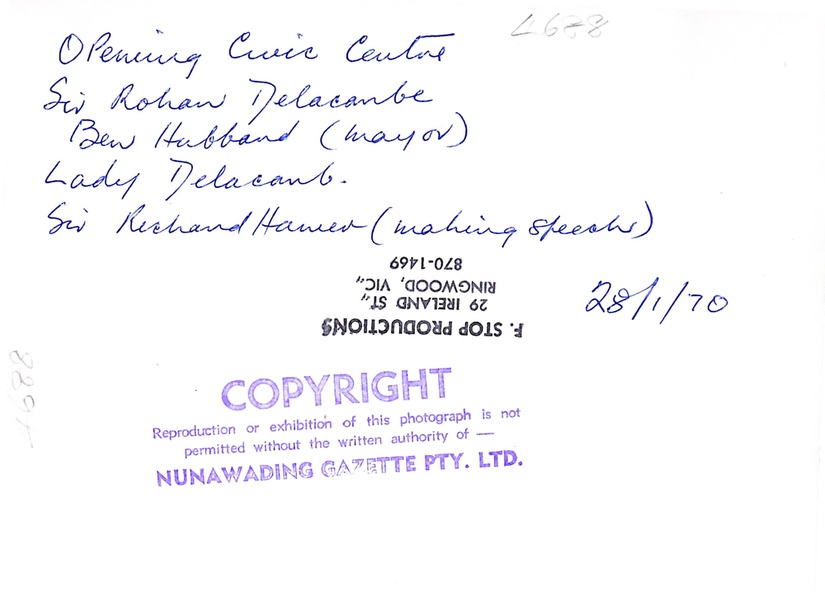 L688
Opening Civic Centre
Sir Rohan Delacanbe
Ben Hubband (mayor)
Lady Delacanb.
Sir Richard Hamer (making speechs)
28/1/70
F. STOP PRODUCTIONS
29 IRELAND ST.,
RINGWOOD, VIC.,
870-1469
COPYRIGHT
Reproduction or exhibition of this photograph is not
permitted without the written authority of —
NUNAWADING GAZETTE PTY. LTD.